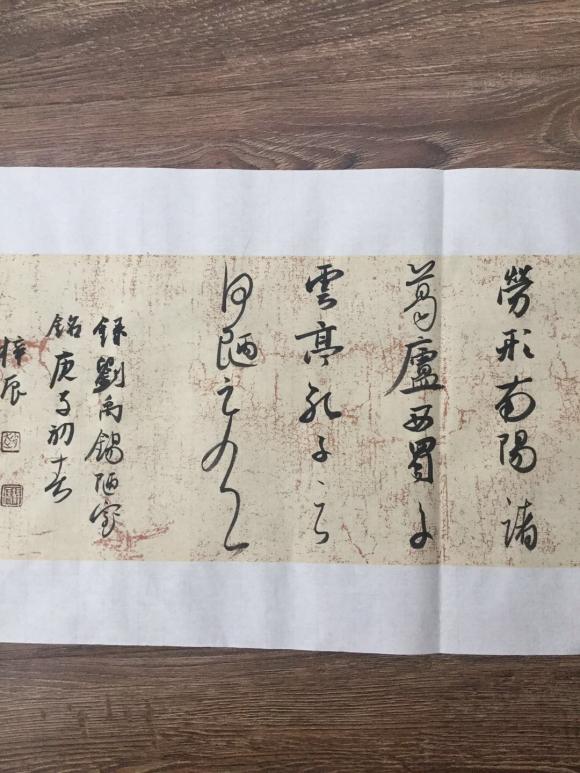 勞形南陽諸
葛廬西蜀子
雲亭孔子云
何陋之有
錄劉禹錫陋室
銘庚子初春
梓辰